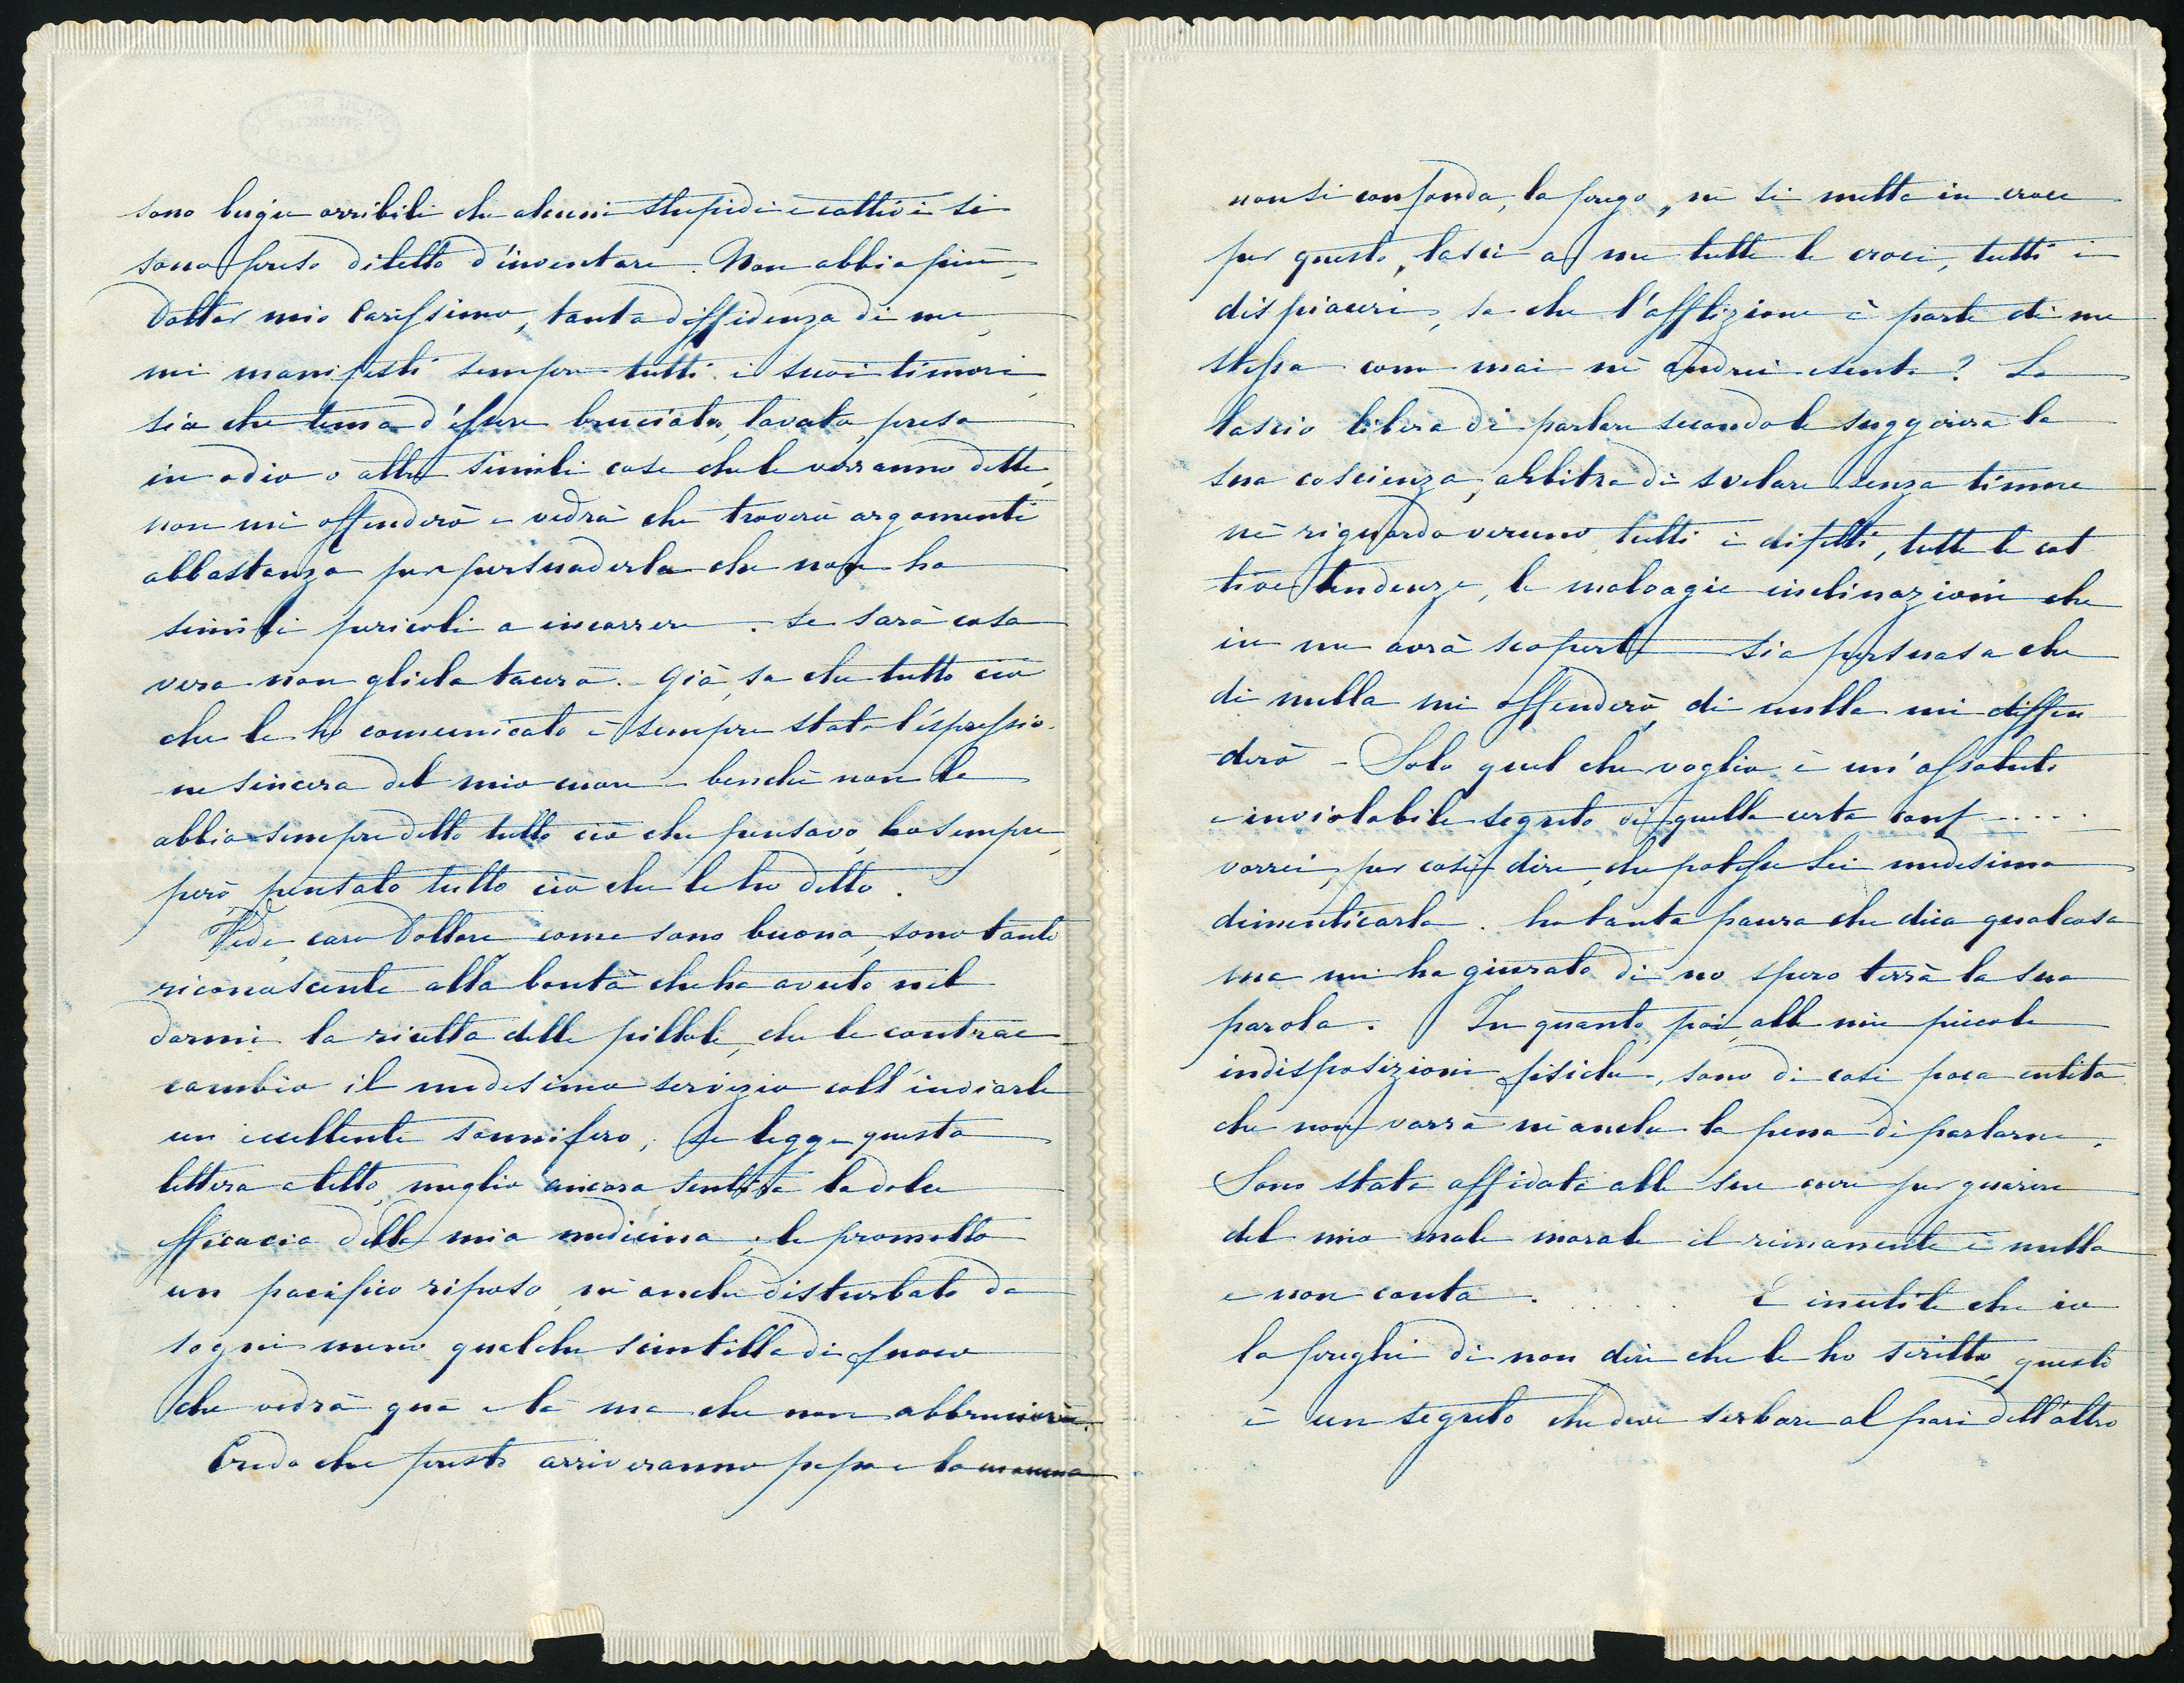 sono bugie orribili che alcuni stupidi e cattivi si
sono preso diletto d'inventare. Non abbia più,
Dottor mio Carissimo, tanta diffidenza di me,
mi manifesti sempre tutti i suoi timori,
sia che tema d'essere bruciato, lavato, preso
in odio o altre simili cose che le verranno dette,
non mi offenderò e vedrà che troverò argomenti
abbastanza per persuaderla che non ha
simili pericoli a incorrere. Se sarà cosa
vera non gliela tacerò. Già sa che tutto ciò
che le ho comunicato è sempre stato l'espressio-
ne sincera del mio cuore - benchè non le
abbia sempre detto tutto ciò che pensavo, ho sempre,
però, pensato tutto ciò che le ho detto.
Vede, caro Dottore come sono buona, sono tanto
riconoscente alla bontà che ha avuto nel
darmi la ricetta delle pillole, che le contrac-
cambio il medesimo servizio coll'inviarle
un eccellente sonnifero; se legge questa
lettera a letto, meglio ancora sentirà la dolce
efficacia della mia medicina; le prometto
un pacifico riposo, nè anche disturbato da
sogni meno qualche scintilla di fuoco
che vedrà quà e là ma che non abbrucierà.
Credo che presto arriveranno papa e la mamma
non si confonda, la prego, nè si metta in croce
per questo, lasci a me tutte le croci, tutti i
dispiaceri, sa che l'afflizione è parte di me
stessa come mai nè andrei esente? La
lascio libera di parlare secondo le suggerirà la
sua coscienza, arbitra di svelare senza timore
nè riguardo veruno tutti i difetti, tutte le cat
tive tendenze, le malvagie inclinazioni che
in me avrà scoperte sia persuasa che
di nulla mi offenderò, di nulla mi diffen
-derò - Solo quel che voglio è un'assoluto
e inviolabile segreto di quella certa conf.....
vorrei, per così dire, che potesse Lei medesimo
dimenticarla. ho tanta paura che dica qualcosa
ma mi ha giurato di no spero terrà la sua
parola. In quanto, poi, alle mie piccole
indisposizioni fisiche, sono di così poca entità
che non varrà nè anche la pena di parlarne.
Sono stata affidata alle sue cure per guarire
del mio male morale il rimanente è nulla
e non conta. . . . . . È inutile che io
la preghi di non dire che le ho scritto, questo
è un segreto che deve serbare al pari dell'altro